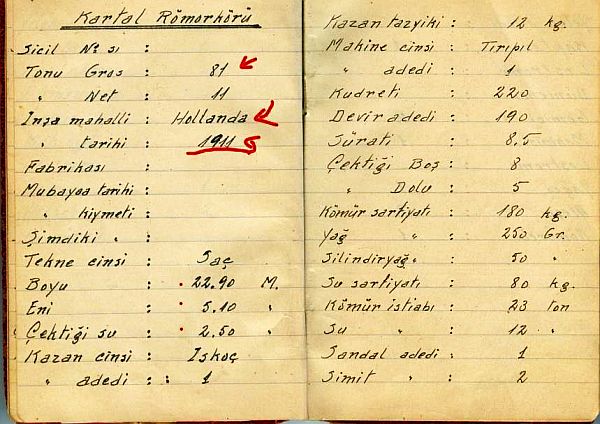 Kartal Römorkörü
Sicil No sı :
Tonu Gros : 81
" Net : 11
İnşa mahalli : Hollanda
" tarihi : 1911
Fabrikası :
Mubayaa tarihi :
" kıymeti :
Şimdiki " :
Tekne cinsi : Saç
Boyu : 22.90 M.
Eni : 5.10 "
Çektiği su : 2.50 "
Kazan cinsi : İskoç
" adedi : : 1
Kazan tazyiki : 12 kg.
Makine cinsi : Tiripil
" adedi : 1
Kudreti : 220
Devir adedi : 190
Sürati : 8.5
Çektiği Boş : 8
" Dolu : 5
Kömür sarfiyatı : 180 kg.
Yağ " : 250 Gr.
Silindiryağı " : 50 "
Su sarfiyatı : 80 kg.
Kömür istiabı : 23 ton
Su " : 12 "
Sandal adedi : 1
Simit " : 2